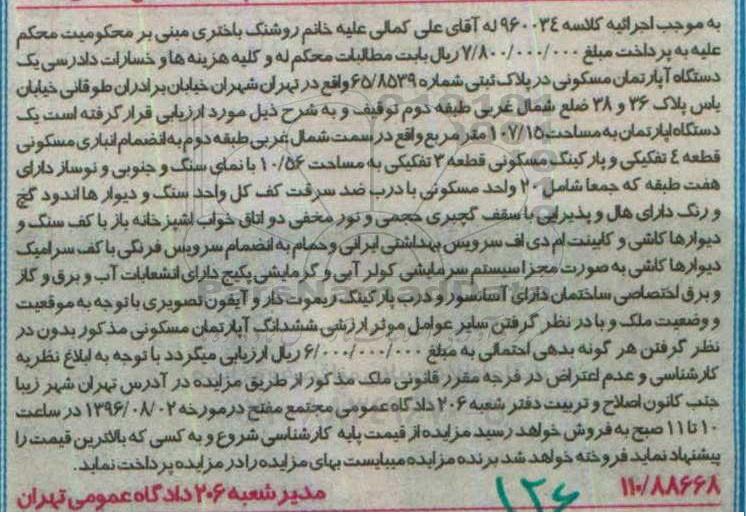 به موجب اجرائیه کلاسه ۹۶۰۰۳۴ له آقای علی کمالی علیه خانم روشنک باختری مبنی بر محکومیت محکم
علیه به پرداخت مبلغ ۷/۸۰۰/۰۰۰/۰۰۰ ریال بابت مطالبات محکم له و کلیه هزینه ها و خسارات دادرسی یک
دستگاه آپارتمان مسکونی در پلاک ثبتی شماره ۶۵/۸۵۳۹ واقع در تهران شهران خیابان برادران طوقانی خیابان
یاس پلاک ۳۶ و ۳۸ ضلع شمال غربی طبقه دوم توقیف و به شرح ذیل مورد ارزیابی قرار گرفته است یک
دستگاه اپارتمان به مساحت ۱۰۷/۱۵ متر مربع واقع در سمت شمال غربی طبقه دوم به انضمام انباری مسکونی
قطعه ٤ تفکیکی و پارکینگ مسکونی قطعه ۳ تفکیکی به مساحت ۱۰/۵۶ با نمای سنگ و جنوبی و نوساز دارای
هفت طبقه که جمعا شامل ۲۰ واحد مسکونی با درب ضد سرقت کف کل واحد سنگ و دیوار ها اندود گچ
و رنگ دارای هال و پذیرایی با سقف گچبری حجمی و نور مخفی دو اتاق خواب اشپزخانه باز با کف سنگ و
دیوارها کاشی و کابینت ام دی اف سرویس بهداشتی ایرانی وحمام به انضمام سرویس فرنگی با کف سرامیک
دیوارها کاشی به صورت مجزا سیستم سرمایشی کولر آبی و گرمایشی پکیج دارای انشعابات آب و برق و گاز
و برق اختصاصی ساختمان دارای آسانسور و درب پارکینگ ریموت دار و آیفون تصویری با توجه به موقعیت
و وضعیت ملک و با در نظر گرفتن سایر عوامل موثر ارزشی ششدانگ آپارتمان مسکونی مذکور بدون در
نظر گرفتن هر گونه بدهی احتمالی به مبلغ ۶/۰۰۰/۰۰۰/۰۰۰ ریال ارزیابی میگردد با توجه به ابلاغ نظریه
کارشناسی و عدم اعتراض در فرجه مقرر قانونی ملک مذکور از طریق مزایده در آدرس تهران شهر زیبا
جنب کانون اصلاح و تربیت دفتر شعبه ۲۰۶ دادگاه عمومی مجتمع مفتح در مورخه ۱۳۹۶/۰۸/۰۲ در ساعت
۱۰ تا ۱۱ صبح به فروش خواهد رسید مزایده از قیمت پایه کارشناسی شروع و به کسی که بالاترین قیمت را
پیشنهاد نماید فروخته خواهد شد برنده مزایده میبایست بهای مزایده را در مزایده پرداخت نماید.
۱۱۰/۸۸۶۶۸
۱۲۶
مدیر شعبه ۲۰۶ دادگاه عمومی تهران
ParsNamadData